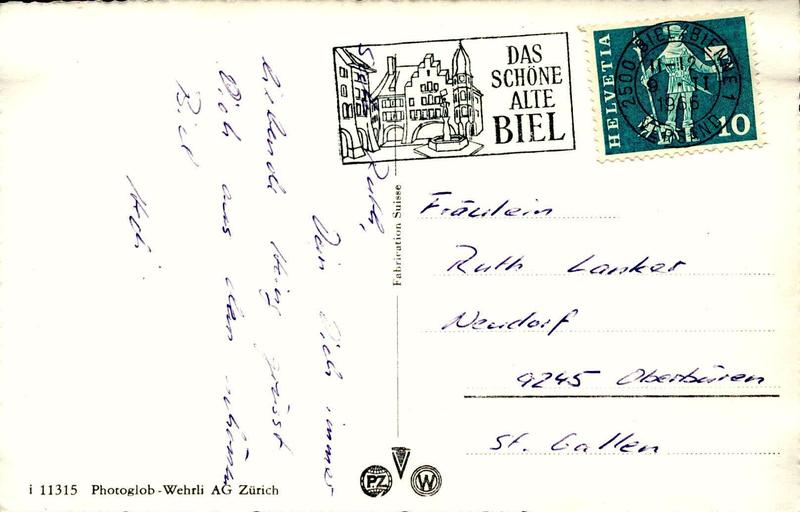 DAS
SCHÖNE
ALTE
BIEL
HELVETIA
2500 BIEL-BIENNE 1
1966
VERSAND
10
Ruth,
Dein Dich immer
liebende grüsst
Dich aus dem schönen
Biel
Fräulein
Ruth Lanker
Neudorf
9245 Oberbüren
St. Gallen
Fabrication Suisse
i 11315 Photoglob-Wehrli AG Zürich
PZ
W